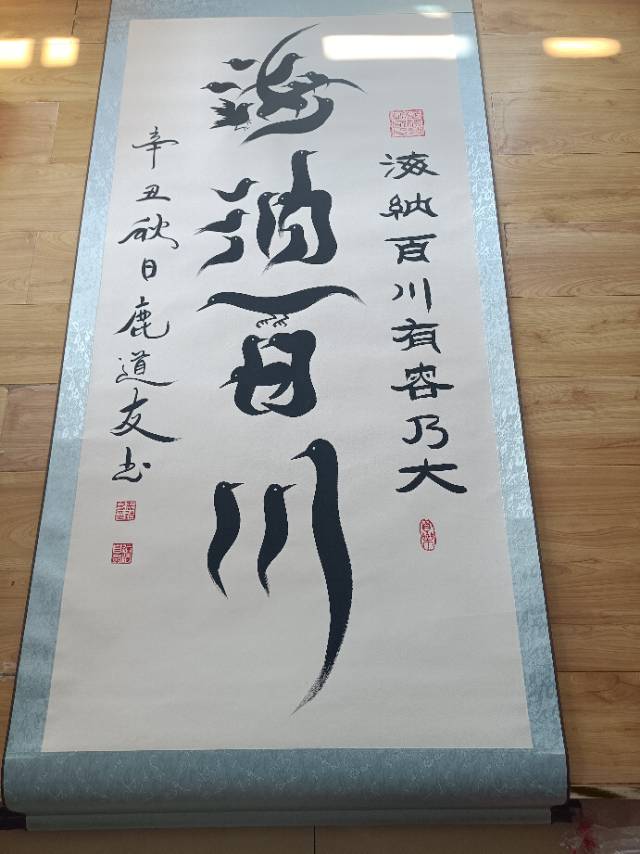 海纳百川有容乃大
海纳百川
辛丑秋日鹿道友书